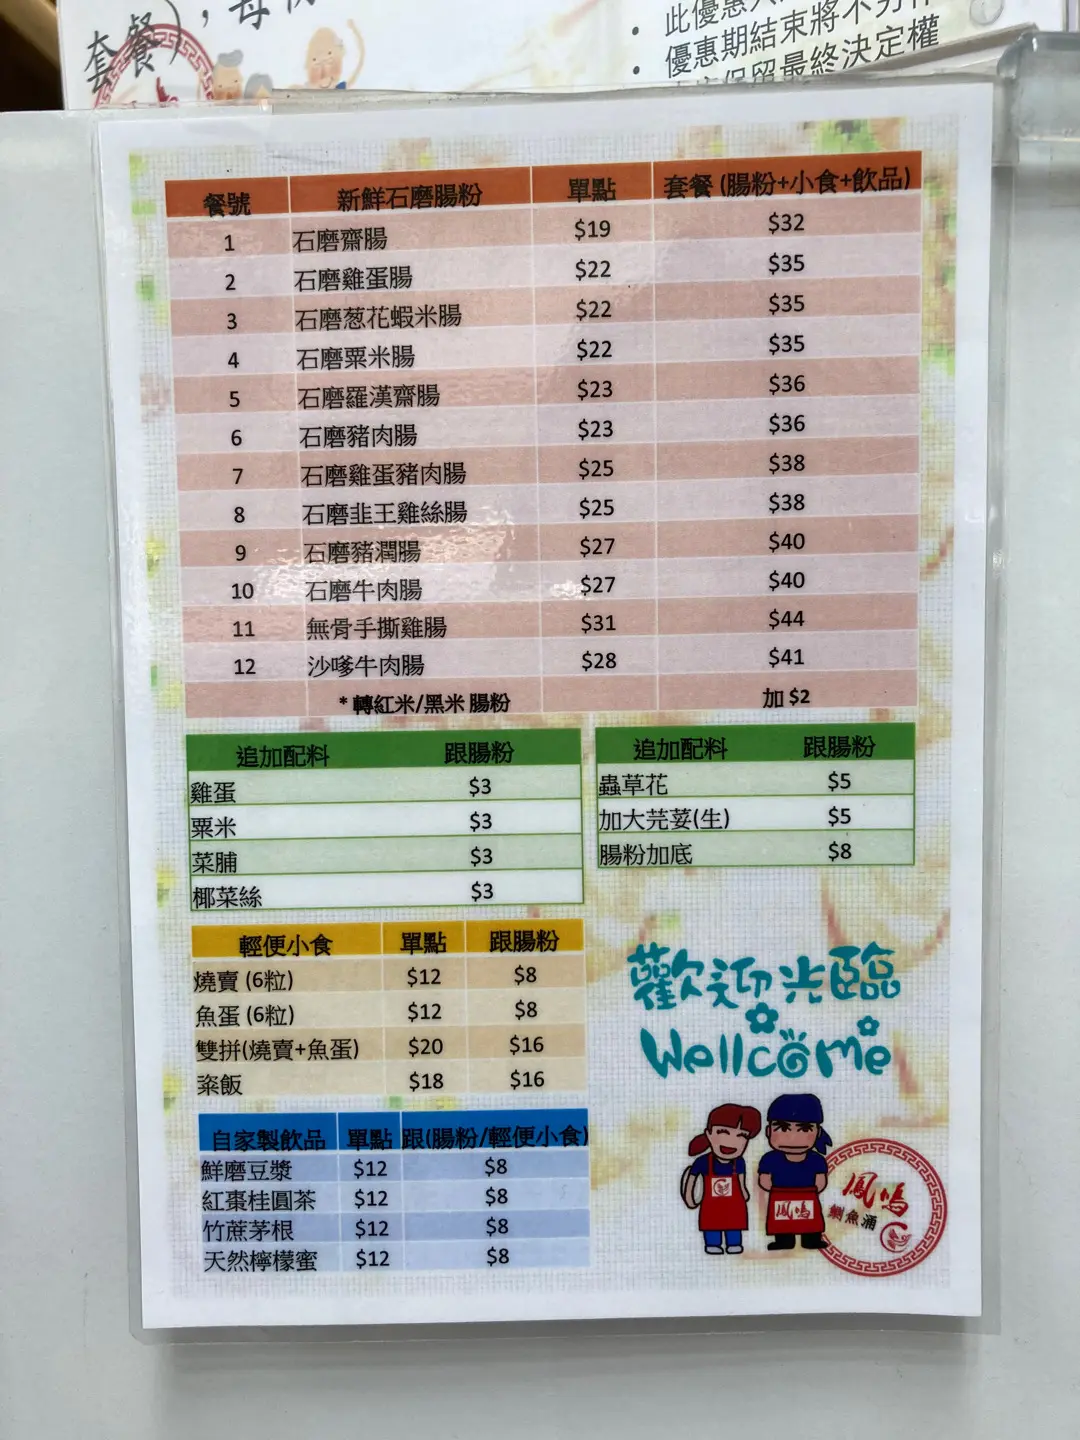 套餐），每
此優惠
優惠期結束將不另
保留最終決定權
餐號 新鮮石磨腸粉 單點 套餐 (腸粉+小食+飲品)
1 石磨齋腸 $19 $32
2 石磨雞蛋腸 $22 $35
3 石磨葱花蝦米腸 $22 $35
4 石磨粟米腸 $22 $35
5 石磨羅漢齋腸 $23 $36
6 石磨豬肉腸 $23 $36
7 石磨雞蛋豬肉腸 $25 $38
8 石磨韭王雞絲腸 $25 $38
9 石磨豬潤腸 $27 $40
10 石磨牛肉腸 $27 $40
11 無骨手撕雞腸 $31 $44
12 沙嗲牛肉腸 $28 $41
* 轉紅米/黑米 腸粉 加 $2
追加配料 跟腸粉
雞蛋 $3
粟米 $3
菜脯 $3
椰菜絲 $3
追加配料 跟腸粉
蟲草花 $5
加大芫荽(生) $5
腸粉加底 $8
輕便小食 單點 跟腸粉
燒賣 (6粒) $12 $8
魚蛋 (6粒) $12 $8
雙拼(燒賣+魚蛋) $20 $16
粢飯 $18 $16
自家製飲品 單點 跟(腸粉/輕便小食)
鮮磨豆漿 $12 $8
紅棗桂圓茶 $12 $8
竹蔗茅根 $12 $8
天然檸檬蜜 $12 $8
歡迎光臨
Wellcome
鳳鳴
鳳鳴
鰂魚涌